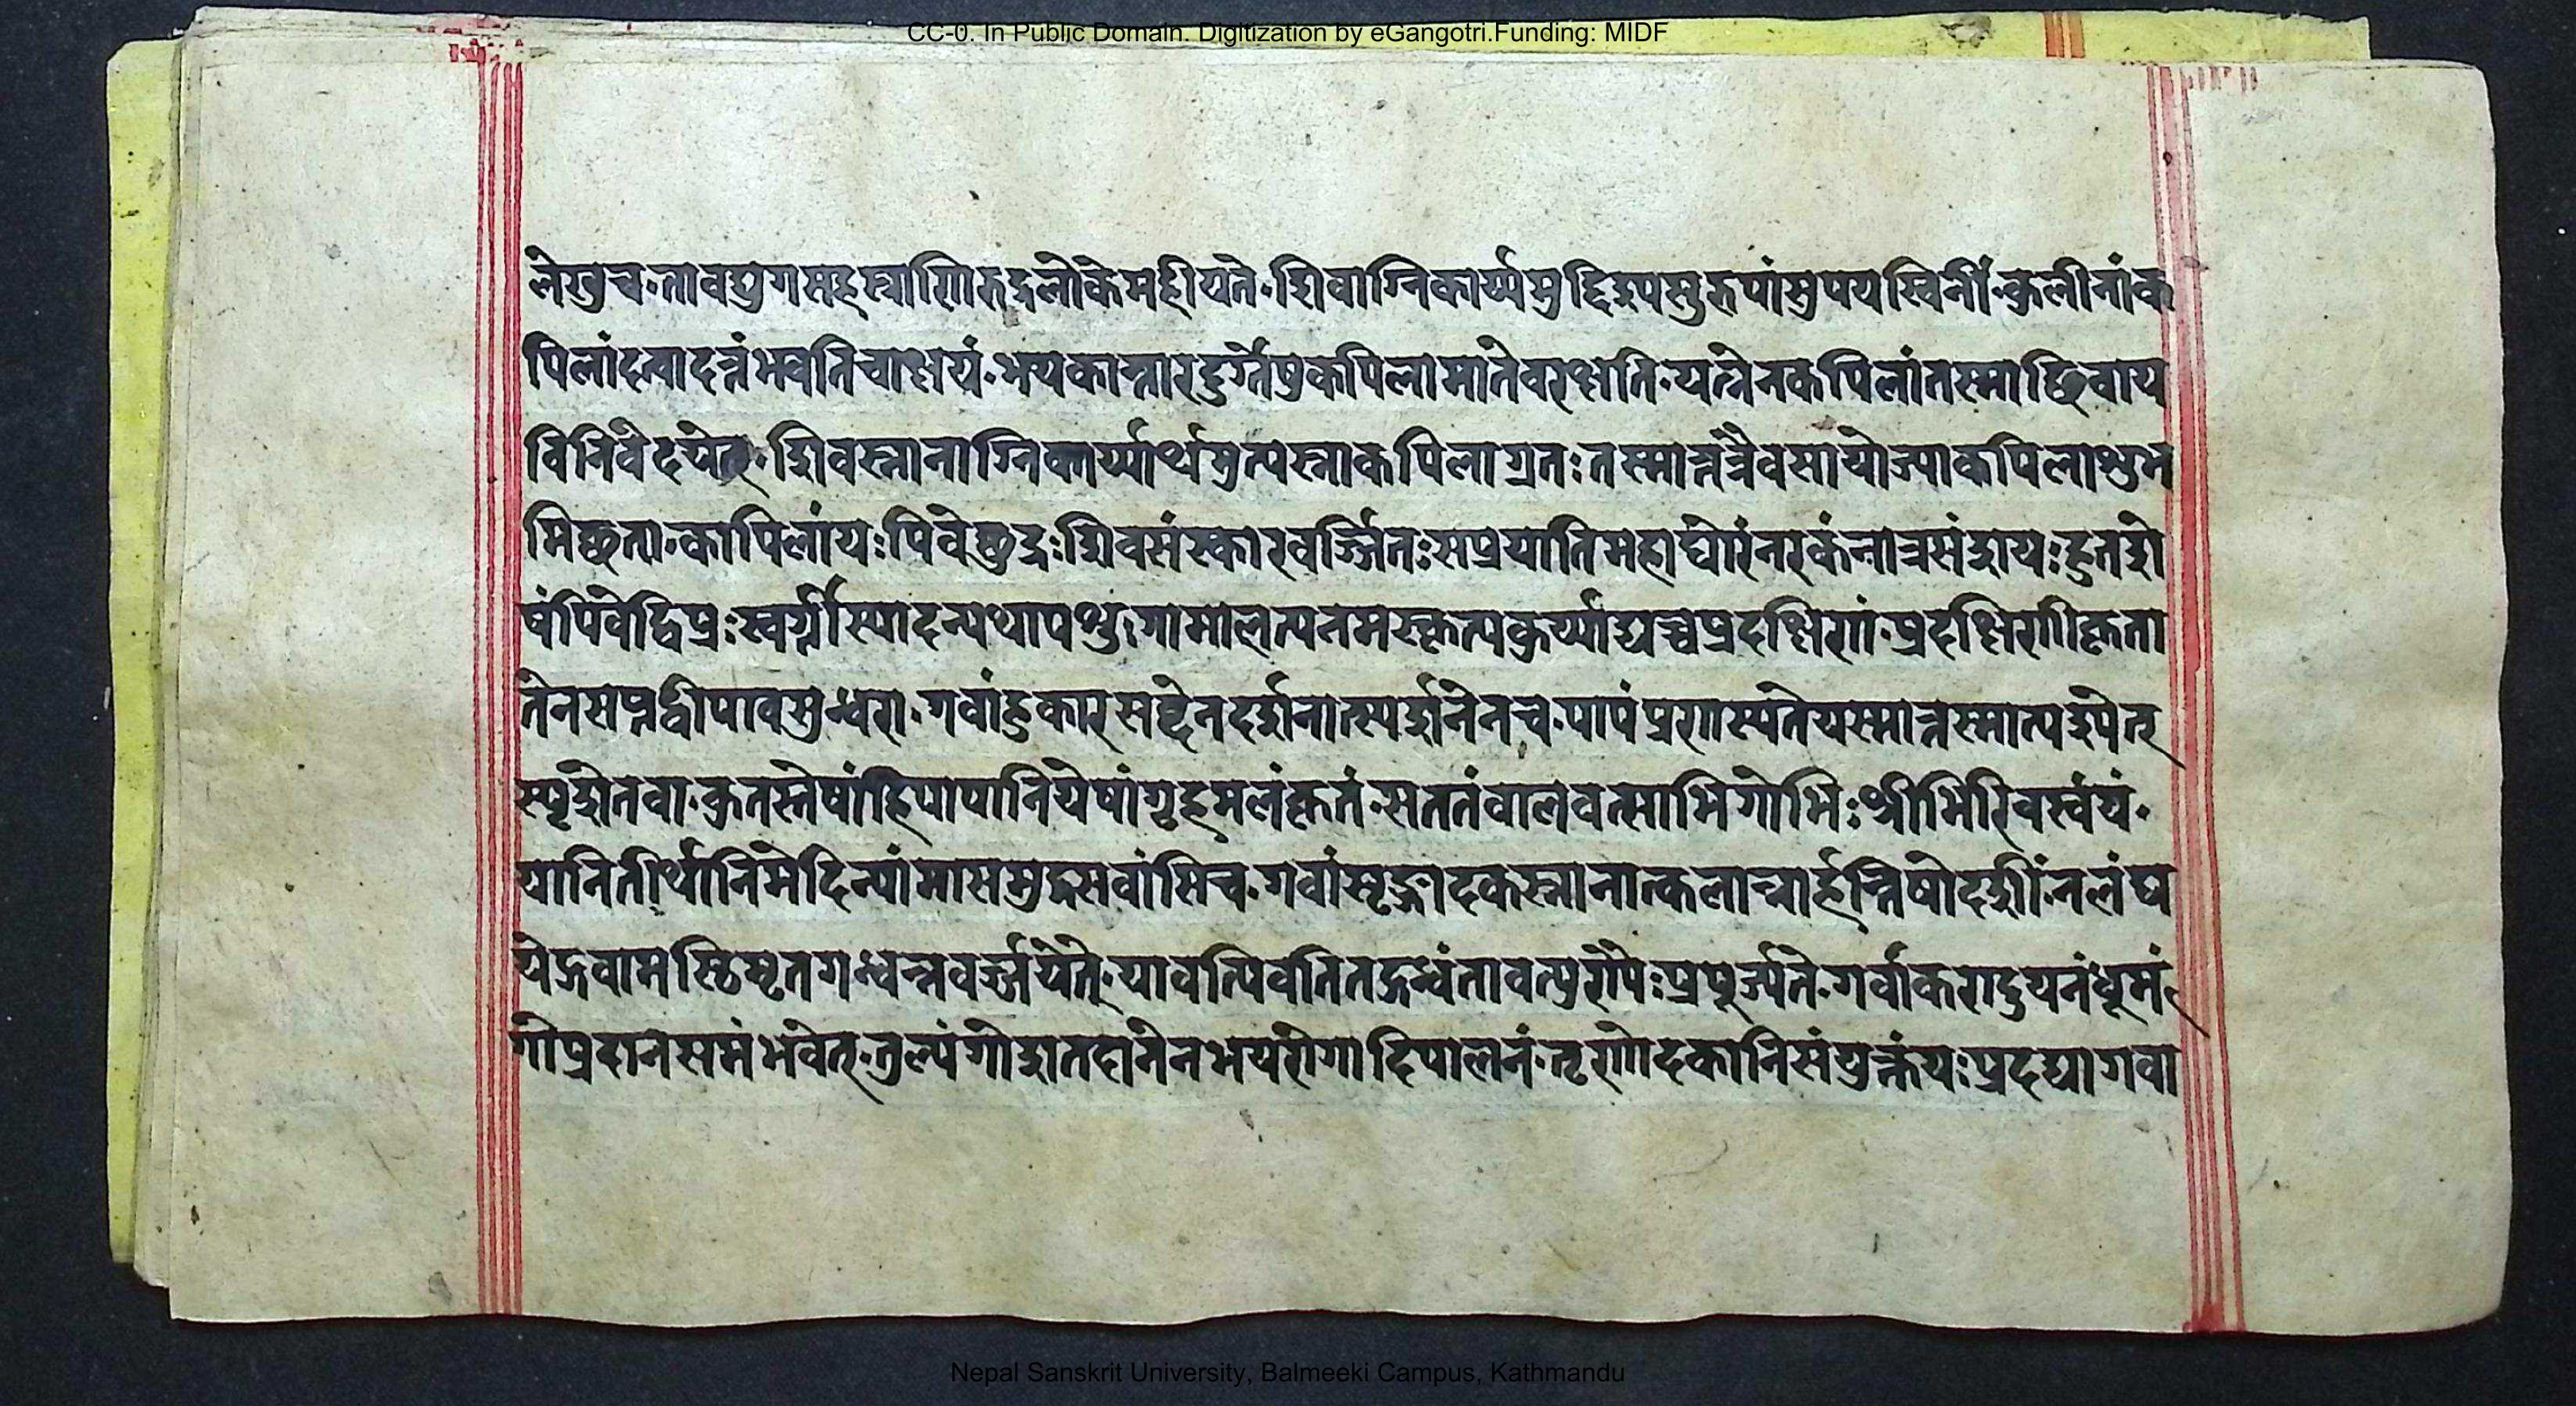 CC-0. In Public Domain. Digitization by eGangotri.Funding: MIDF
लेखुच·तावद्युगसहस्राणिरुद्रलोकेमहीयते·शिवाग्निकार्य्यमुद्दिश्यसुरुपांसुपयस्विनीं·कुलीनांक
पिलांदत्वादत्तंभवतिचाक्षयं·भयकान्तारदुर्ग्गेषुकपिलामातेवरक्षति·यत्नेनकपिलांतस्माच्छिवाय
विनिवेदयेत्·शिवस्नानाग्निकार्य्यार्थमुत्पन्नाकपिलाग्रतः तस्मात्तत्रैवसायोज्याकपिलाशुभ
मिच्छता·कापिलांयःपिवेछुद्रःशिवसंस्कारवर्ज्जितःसप्रयातिमहाघोरंनरकंनात्रसंशयःहुतशे
षंपिवेद्विप्रःस्वर्ग्गीस्यादन्यथापशु·गामालत्यनमस्कृत्यकुर्य्याद्यच्चप्रदक्षिणां·प्रदक्षिणीकृता
तेनसप्तद्वीपावसुन्धरा·गवांहुकारसद्देनदर्शनात्स्पर्शनेनच·पापंप्रणस्यतेयस्मात्तस्मात्पश्येत्
स्पृशेतवा·कुतस्तेषांहिपापानियेषांगृहमलंकृतं·सततंवालवत्साभिगोभिःश्रीभिरिवस्वयं·
यानितीर्थानिमेदिन्यांमासमुद्रसवांसिच·गवांसृङ्गोदकस्नानात्कलान्नार्हन्तिषोदशीं·नलंघ
येद्गवामस्ठिमृतगन्धन्नवर्ज्जयेत्·यावत्पिवतितद्गन्धंतावत्पुण्यैःप्रपूर्ज्यते·गवांकरादुयनंधूमं
गोप्रदानसमंभवेत्·तुल्यंगोशतदानेनभयरोगादिपालनं·तृणोदकानिसंयुक्तंयःप्रदद्यागवा
Nepal Sanskrit University, Balmeeki Campus, Kathmandu